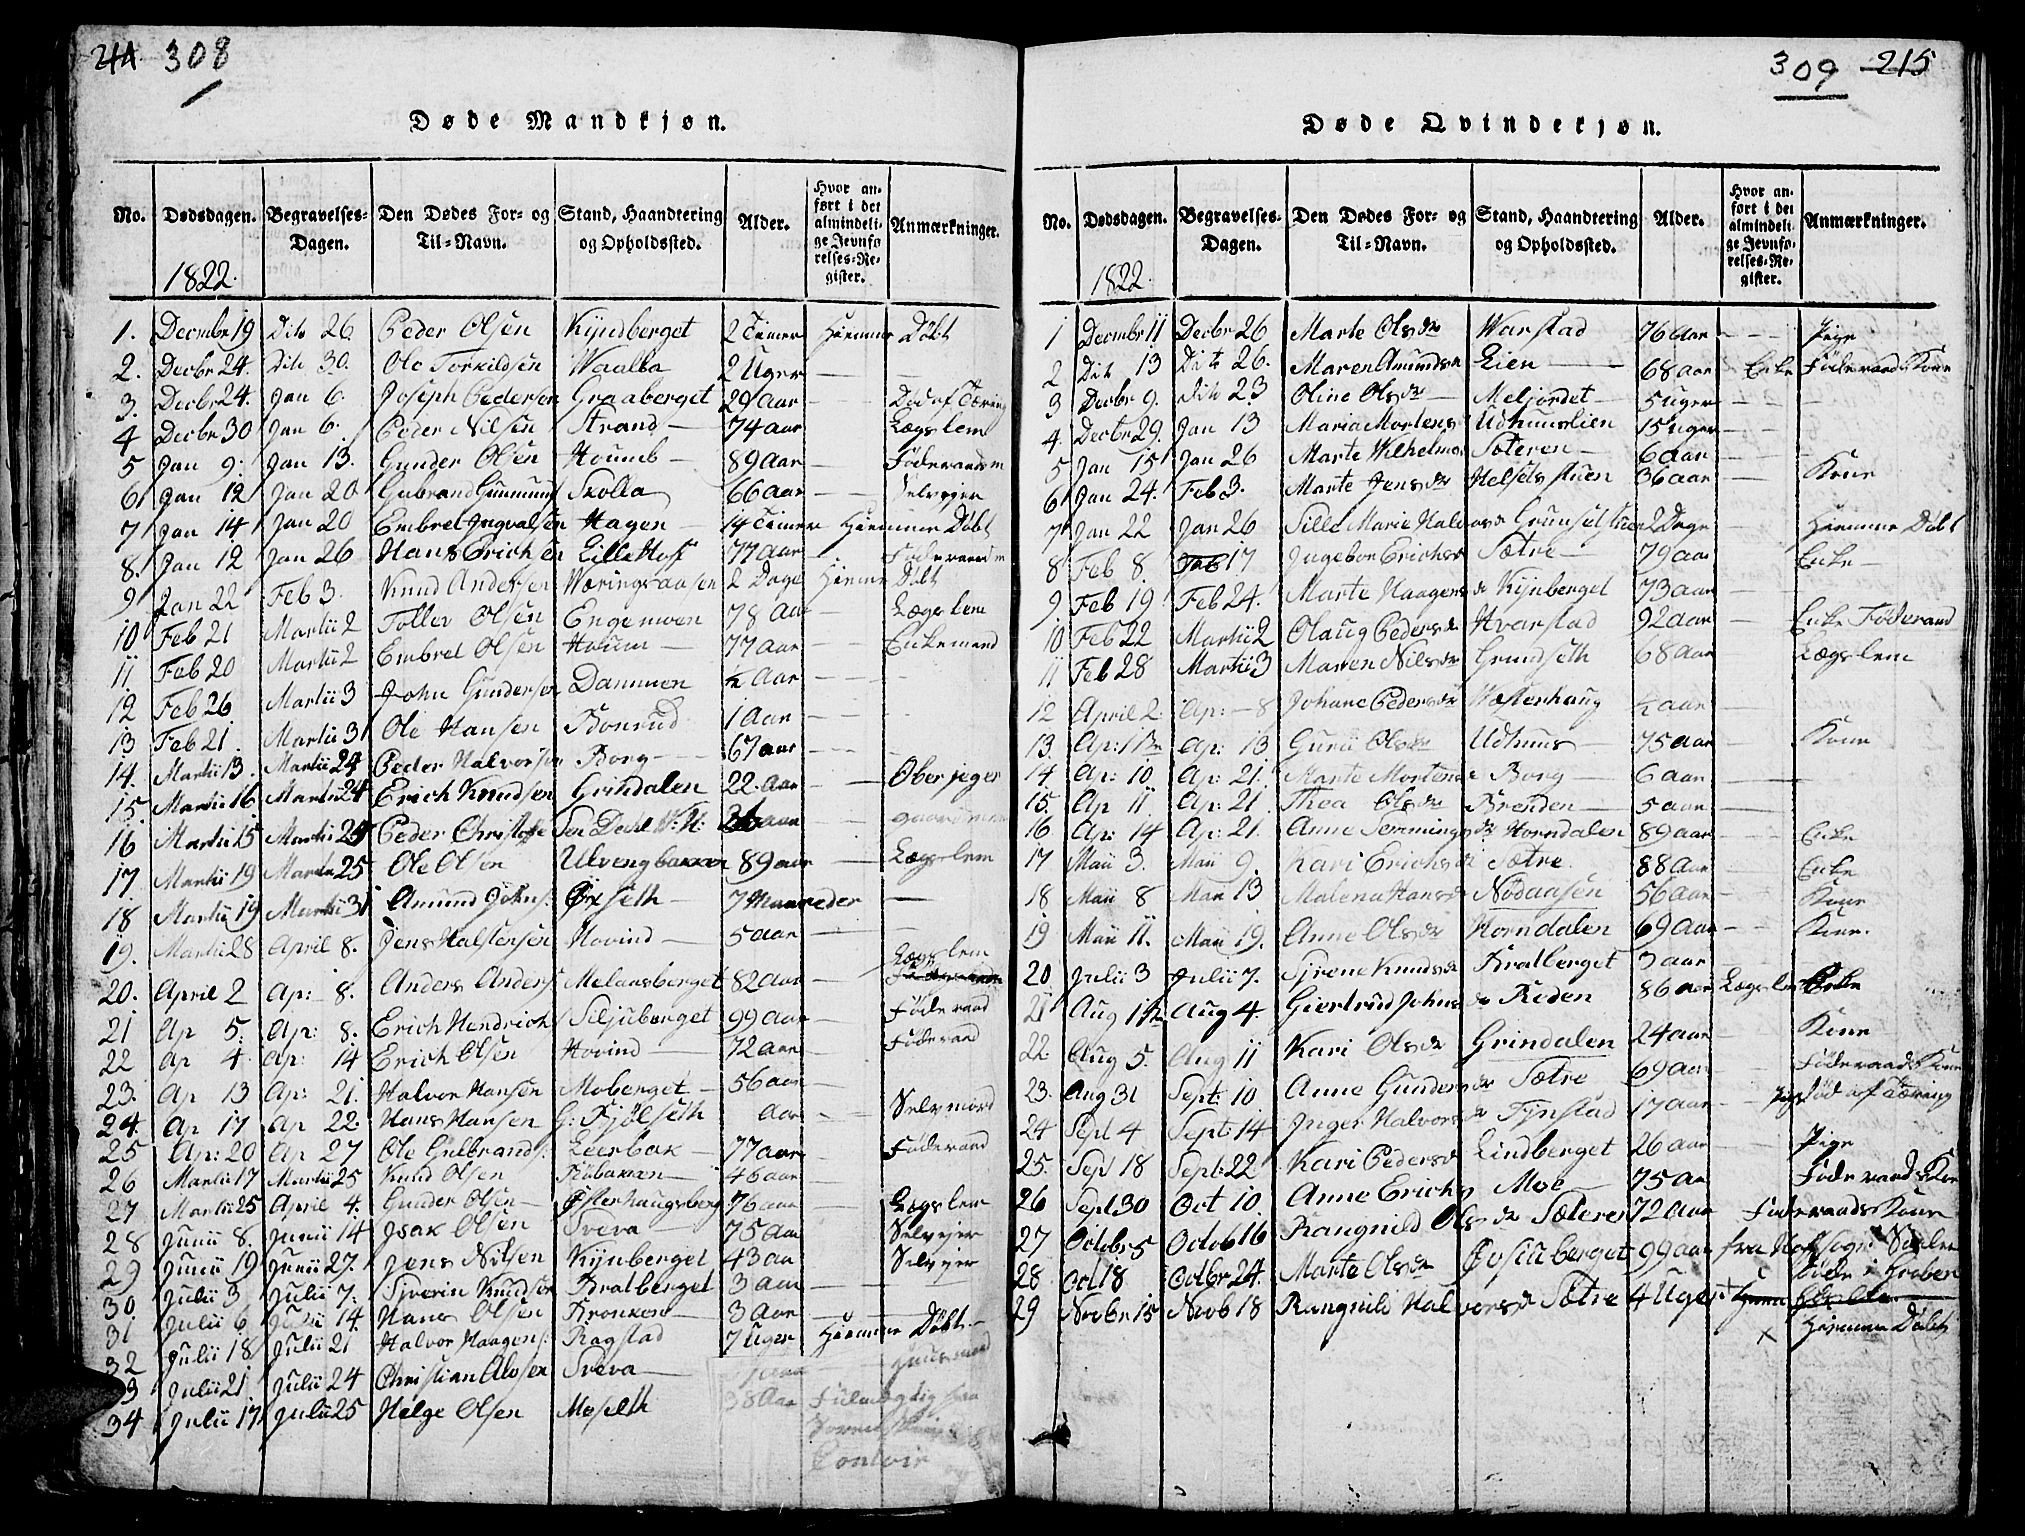 214 308
Døde Mandkjøn.
No. Dødsdagen. Begravelses-Dagen. Den Dødes For- og Til-Navn. Stand, Haandtering og Opholdssted. Alder. Hvor anført i det almindelige Jevnførelses-Register. Anmærkninger.
1822.
1. Decmbr 19 Dito 26. Peder Olsen Kijndberget 2 Timer Hiemme Døbt
2. Decbr 24. Dito 30. Ole Torkildsen Waalba 2 Uger
3. Decbr 24. Jan 6. Joseph Pedersen Graaberget 29 Aar Død af Tæring
4 Decbr 30 Jan 6. Peder Nilsen Strand 74 aar Lægslem
5 Jan 9. Jan 13. Gunder Olsen Houmb 89 Aar Føderaadsm
6. Jan 12 Jan 20 Gubrand Gunmund Skolla 66 Aar Selvejer
7 Jan 14 Jan 20 Embret Ingvalsen Hagen 14 Timer Hiemme Døbt
8. Jan 12 Jan 26 Hans Erichsen Lille Hof 77 Aar Føderaadsm
9 Jan 22 Feb 3. Knud Andersen Wæringsaasen 2 Dage Hiemme Døbt
10 Feb 21 Martii 2 Tollev Olsen Engemoen 78 Aar Lægslem
11 Feb 20 Martii 2 Embret Olsen Houm 77 Aar Enkemand
12 Feb 26 Martii 3 John Gundersen Dammen ½ Aar
13 Feb 21. Martii 3 Ole Hansen Bonrud 1 Aar
14. Martii 13. Martii 24 Peder Halvorsen Borg 67 aar
15. Martii 16 Martii 24 Erich Knudsen Grindalen 22. Aar Oberjeger
16 Martii 15 Martii 24 Peder Christophersen Dehl aar
17 Martii 19 Martii 25 Ole Olsen Ulvengbakken 89 aar Lægslem
18 Martii 19 Martii 31 Amund Johns: Øxseth 7 Maaneder
19. Martii 28 April 8. Jens Halstensen Hovind 5 aar
20. April 2 Ap: 8. Anders Anders: Melansberget 82 Aar Lægslem
21 Ap 5. Ap: 8. Erich Hendrich Siljuberget 99 Aar Føderaad
22 Ap 4. Ap: 14 Erich Olsen Hovind 72 Aar Føderaad
23. Ap 13 Ap: 21. Halvor Hansen Moberget 56 aar
24. Ap 17 Ap 22. Hans Hansen G: Fjølseth aar Selvmord
25 Ap: 20 Ap 27 Ole Gulbrands: Leerbak 77 aar Føderaad
26 Martii 17 Martii 25 Knud Olsen 46 aar
27 Martii 25 April 4. Gunder Olsen Østerhaugsberg 76 aar Lægslem
28 Junii 8. Junii 14 Isak Olsen Sveva 75 Aar Selvejer
29 Junii 19 Junii 27. Jens Nilsen Kijnberget 43 aar Selvejer
30 Julii 3 Julii 7. Syverin Knudsen Bratberget 3 aar
31 Julii 6 Julii 14 Hans Olsen Kronken 3 Aar
32 Julii 18 Julii 21 Halvor Haagens: Ragstad 7 Uger Hiemme Døbt
33 Julii 21 Julii 24 Christian Olsen Sveva Huusmand
34 Julii 17 Julii 25 Helge Olsen Moseth 38 Aar Fuldmægtig
Contoir
309 215
Døde Qvindekjøn.
No. Dødsdagen. Begravelses-Dagen. Den Dødes For- og Til-Navn. Stand, Haandtering og Opholdssted. Alder. Hvor anført i det almindelige Jevnførelses-Register. Anmærkninger.
1822.
1 Decmbr 11 Decbr 26 Marte Olsdr Warstad 76 Aar Pige
2 Dito 13 Dito 26. Maren Amundsdr Lien 68 aar Enke Føderaads Kone
3 Decbr 9. Dito 23 Oline Olsdr Meljordet 5 uger
4. Decbr 29. Jan 13 Maria Mortens Udhuuslien 15 uger
5 Jan 15 Jan 26 Marte Wilhelms Sæteren 6 aar
6 Jan 24. Feb 3. Marte Jensdr Helsetstuen 36 aar Kone
7 Jan 22 Jan 26 Sille Marie Halvorsdr Grunsetstuen 2 Dage Hiemme Døbt
8 Feb 8. Feb 17 Ingebor Erichsdr Sætre 79 aar Enke
9 Feb 19. Feb 24. Marte Haagensdr Kijnberget 73 aar
10 Feb 22 Martii 2 Olaug Pedersdr Hvarstad 92 aar Enke Føderaad
11 Feb 28 Martii 3 Maren Nilsdr Grundseth 68 aar Lægslem
12 April 2. Ap: 8 Johane Pedersdr Westerhaug ½ aar
13. Ap: 1ste Ap: 13 Gurii Olsdr Udhuus 75 aar Kone
14. Ap: 10. Ap: 21. Marte Mortensdr Borg 6 aar
15. Ap 11 Ap: 21 Thea Olsdr Brenden 5 aar
16. Ap: 14 Ap: 21. Anne Semmingsdr Horndalen 89 aar Enke
17 Maii 3. Maii 9. Kari Erichsdr Sætre 88 Aar Enke
18 Maii 8 Maii 13 Malena Hansdr Nødaasen 56 aar Kone
19 Maii 11. Maii 19. Anne Olsdr Horndalen 69 Aar Kone.
20 Julii 3 Julii 7. Syrene Knudsdr Bratberget 3 aar
21 Aug 1ste Aug 4. Giertrud Johnsdr Reden 86 aar Lægslem Enke
22. Aug 5. Aug 11 Kari Olsdr Grindalen 24 aar Kone
23. Aug 31 Sept: 10 Anne Gundersdr Sætre 69 aar Føderaads Kone
24 Sept 4 Sept: 14 Inger Halvorsdr Fynstad 17 aar Pige død af Tæring
25. Sep 18 Sept: 22 Kari Pedersdr Lindberget 26 aar Pige
26 Sept 30 Oct 10. Anne Erichs Moe 75 aar Føderaads Kone
27 Octobr 5 Octob 16 Rangnild Olsdr Sæteren 72 aar Føderaads Kone
28 Oct 18 Octbr 24. Marte Olsdr Josiaberget 99 aar fra Hof sogn
29 Novbr 15 Novb 18 Rangnild Halvorsdr Sætre 4 Uger +
x Hiemme Døbt